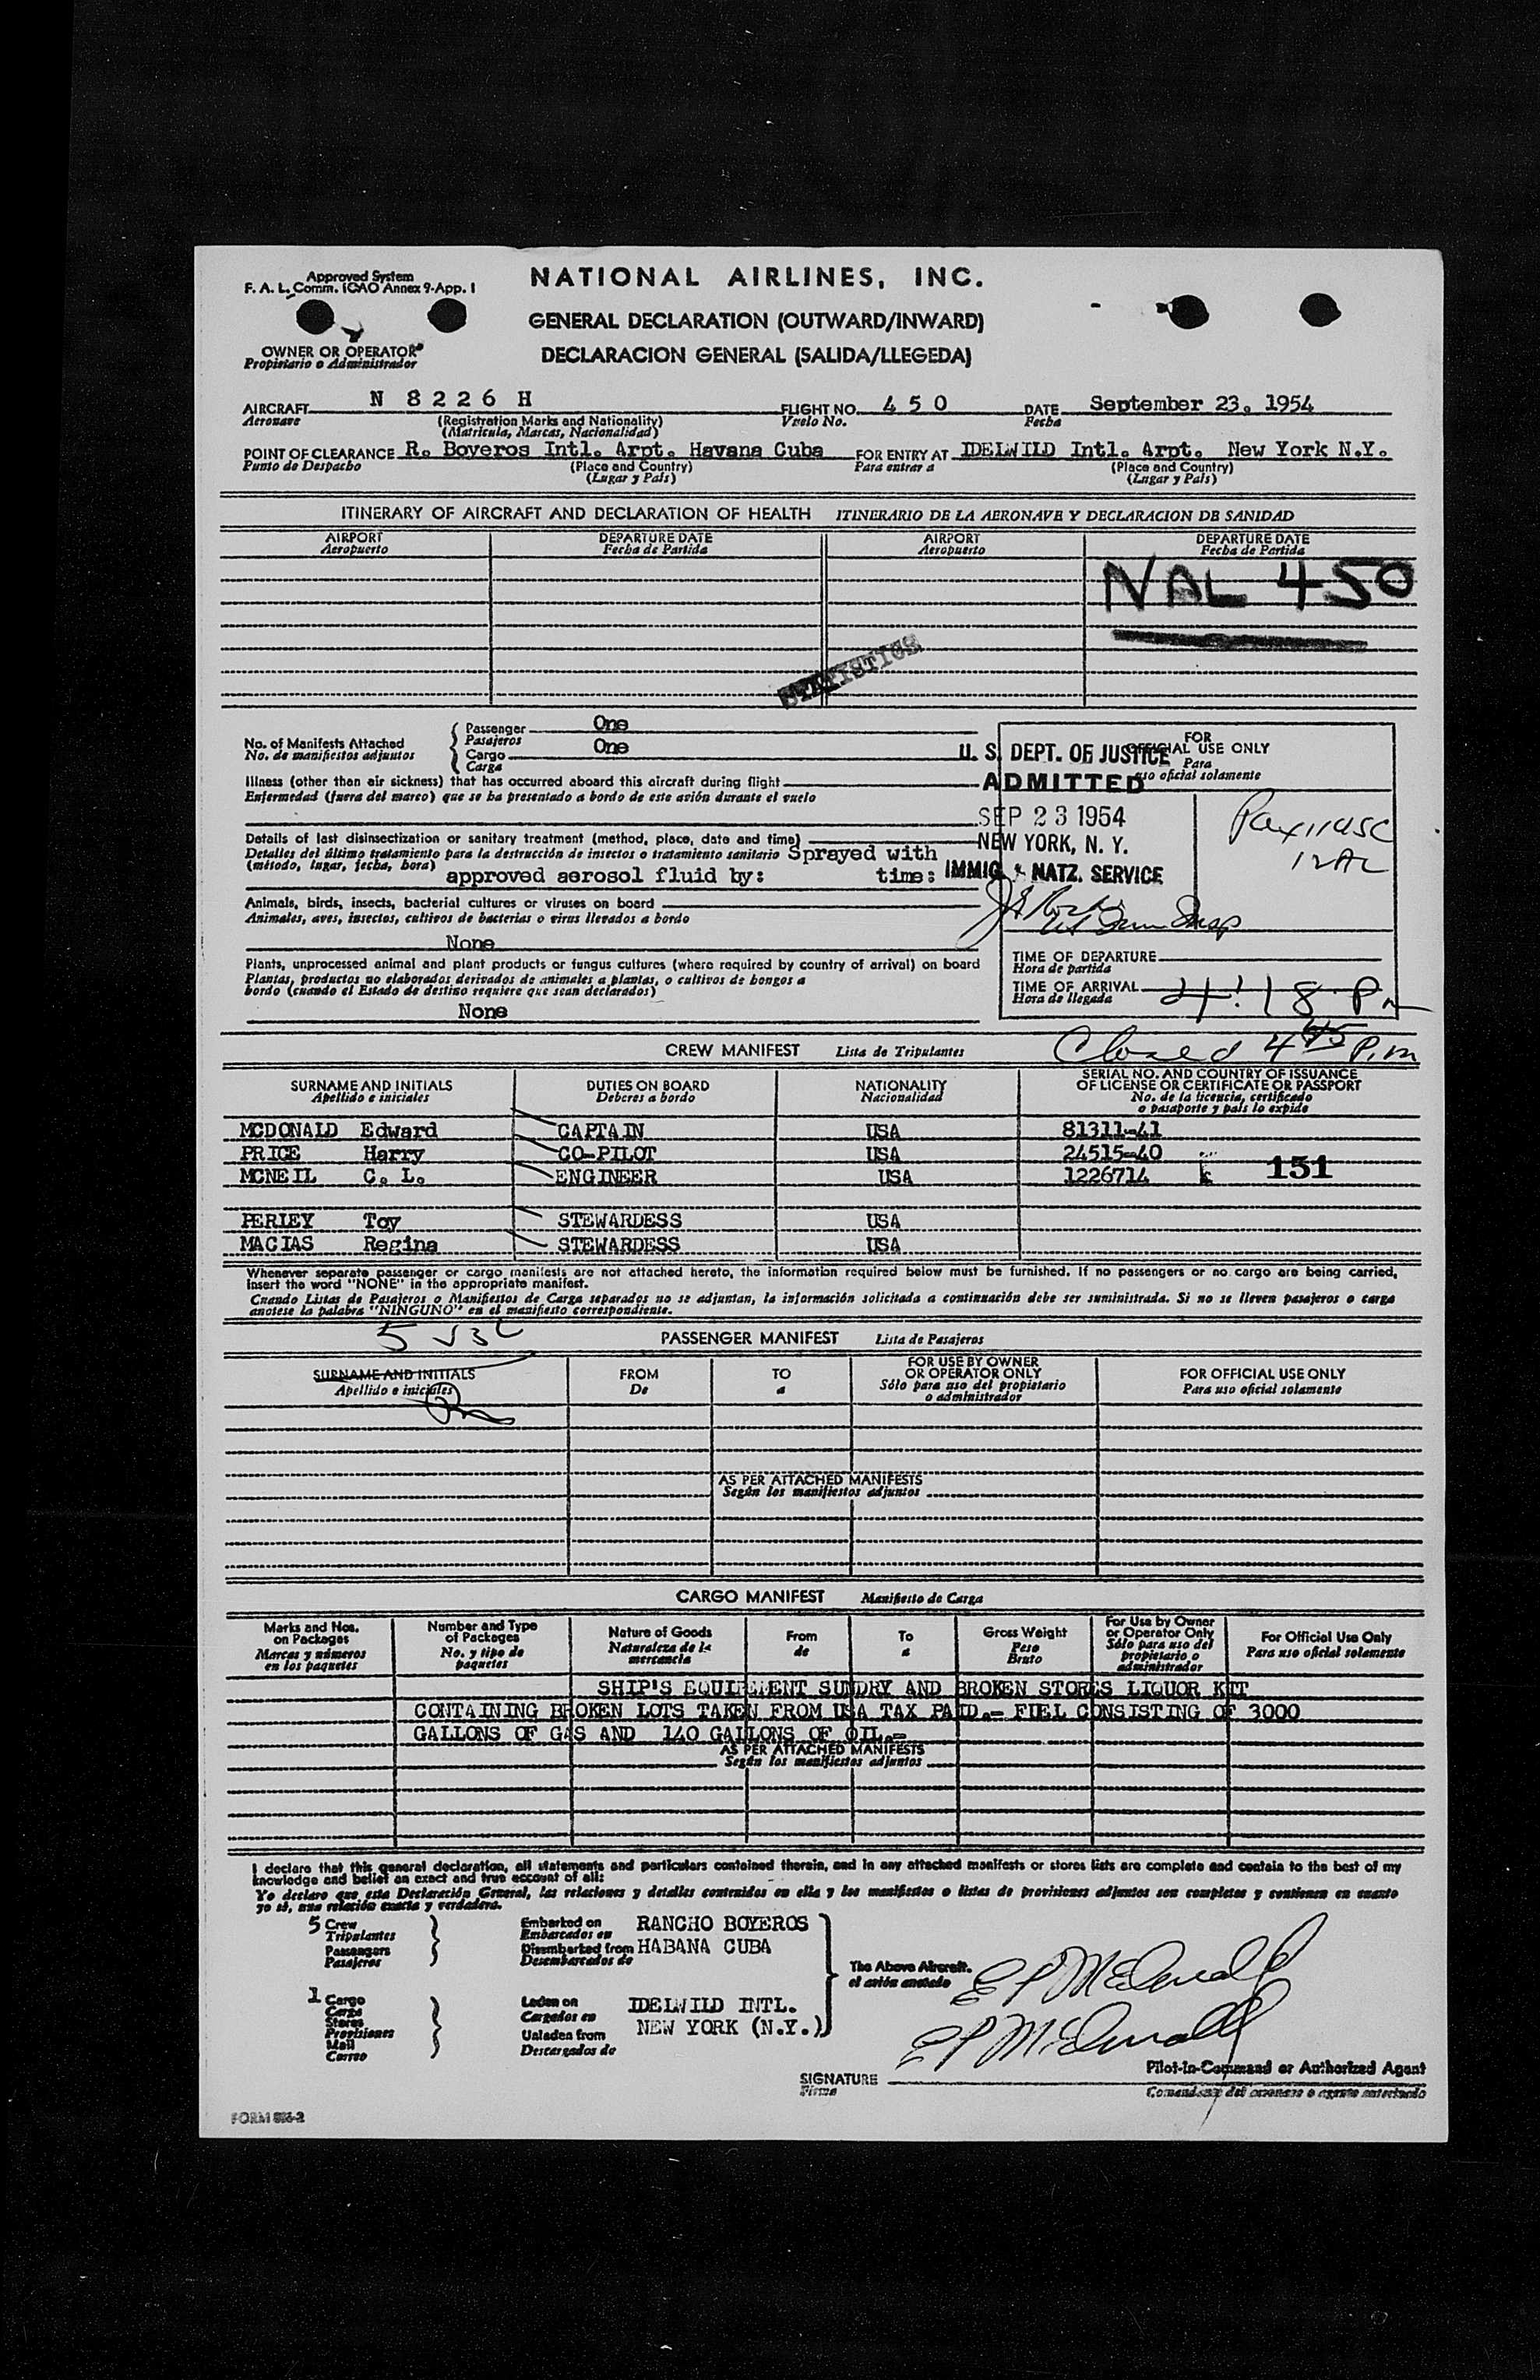 Approved System
F. A. L. Comm. ICAO Annex 9-App. I
NATIONAL AIRLINES, INC.
GENERAL DECLARATION (OUTWARD/INWARD)
DECLARACION GENERAL (SALIDA/LLEGEDA)
OWNER OR OPERATOR
Propietario o Administrador
AIRCRAFT N 8 2 2 6 H FLIGHT NO. 4 5 0 DATE September 23. 1954
Aeronave (Registration Marks and Nationality) Vuelo No. Fecha
(Matricula, Marcas, Nacionalidad)
POINT OF CLEARANCE R. Boyeros Intl. Arpt. Havana Cuba FOR ENTRY AT IDELWILD Intl. Arpt. New York N.Y.
Punto de Despacho (Place and Country) Para entrar a (Place and Country)
(Lugar y País) (Lugar y País)
ITINERARY OF AIRCRAFT AND DECLARATION OF HEALTH ITINERARIO DE LA AERONAVE Y DECLARACION DE SANIDAD
AIRPORT DEPARTURE DATE AIRPORT DEPARTURE DATE
Aeropuerto Fecha de Partida Aeropuerto Fecha de Partida
NAL 450
STATISTICS
No. of Manifests Attached Passenger One
No. de manifiestos adjuntos Pasajeros
Cargo One
Carga
FOR
OFFICIAL USE ONLY
Para
uso oficial solamente
U. S. DEPT. OF JUSTICE
ADMITTED
SEP 23 1954
NEW YORK, N. Y.
IMMIG. & NATZ. SERVICE
Illness (other than air sickness) that has occurred aboard this aircraft during flight
Enfermedad (fuera del mareo) que se ha presentado a bordo de este avión durante el vuelo
Details of last disinsectization or sanitary treatment (method, place, date and time)
Detalles del último tratamiento para la destrucción de insectos o tratamiento sanitario Sprayed with
(método, lugar, fecha, hora) approved aerosol fluid by: time:
Animals, birds, insects, bacterial cultures or viruses on board
Animales, aves, insectos, cultivos de bacterias o virus llevados a bordo
None
Plants, unprocessed animal and plant products or fungus cultures (where required by country of arrival) on board
Plantas, productos no elaborados derivados de animales a plantas, o cultivos de hongos a
bordo (cuando el Estado de destino requiere que sean declarados)
None
TIME OF DEPARTURE
Hora de partida
TIME OF ARRIVAL 4:18 Pm
Hora de llegada
Closed 4 45 P.m
CREW MANIFEST Lista de Tripulantes
SURNAME AND INITIALS DUTIES ON BOARD NATIONALITY SERIAL NO. AND COUNTRY OF ISSUANCE
Apellido e iniciales Deberes a bordo Nacionalidad OF LICENSE OR CERTIFICATE OR PASSPORT
No. de la licencia, certificado
o pasaporte y país lo expide
MCDONALD Edward CAPTAIN USA 81311-41
PRICE Harry CO-PILOT USA 24515-40
MCNEIL C. L. ENGINEER USA 1226714 151
PERLEY Toy STEWARDESS USA
MACIAS Regina STEWARDESS USA
Whenever separate passenger or cargo manifests are not attached hereto, the information required below must be furnished. If no passengers or no cargo are being carried,
insert the word "NONE" in the appropriate manifest.
Cuando Listas de Pasajeros o Manifiestos de Carga separados no se adjuntan, la información solicitada a continuación debe ser suministrada. Si no se lleven pasajeros o carga
anotese la palabra "NINGUNO" en el manifiesto correspondiente.
PASSENGER MANIFEST Lista de Pasajeros
SURNAME AND INITIALS FROM TO FOR USE BY OWNER FOR OFFICIAL USE ONLY
Apellido e iniciales De a OR OPERATOR ONLY Para uso oficial solamente
Sólo para uso del propietario
o administrador
AS PER ATTACHED MANIFESTS
Según los manifiestos adjuntos
CARGO MANIFEST Manifiesto de Carga
Marks and Nos. Number and Type Nature of Goods From To Gross Weight For Use by Owner For Official Use Only
on Packages of Packages Naturaleza de la de a Peso or Operator Only Para uso oficial solamente
Marcas y números No. y tipo de mercancia Bruto Sólo para uso del
en los paquetes paquetes propietario o
administrador
SHIP'S EQUIPEMENT SUNDRY AND BROKEN STORES LIQUOR KIT
CONTAINING BROKEN LOTS TAKEN FROM USA TAX PAID.- FIEL CONSISTING OF 3000
GALLONS OF GAS AND 140 GALLONS OF OIL.-
AS PER ATTACHED MANIFESTS
Según los manifiestos adjuntos
I declare that this general declaration, all statements and particulars contained therein, and in any attached manifests or stores lists are complete and contain to the best of my
knowledge and belief an exact and true account of all:
Yo declaro que esta Declaración General, las relaciones y detalles contenidos en ella y los manifiestos o listas de provisiones adjuntos son completos y contienen en cuanto
yo sé, una relación exacta y verdadera.
5 Crew Embarked on RANCHO BOYEROS
Tripulantes Embarcados en
Passengers Disembarked from HABANA CUBA
Pasajeros Desembarcados de
The Above Aircraft.
el avión anotado
1 Cargo Laden on IDELWILD INTL.
Carga Cargados en
Stores NEW YORK (N.Y.)
Provisiones Unladen from
Mail Descargados de
Correo
E P McDonald
E P McDonald
SIGNATURE Pilot-In-Command or Authorized Agent
Firma Comandante del aeronave o agente autorizado
FORM 886-2